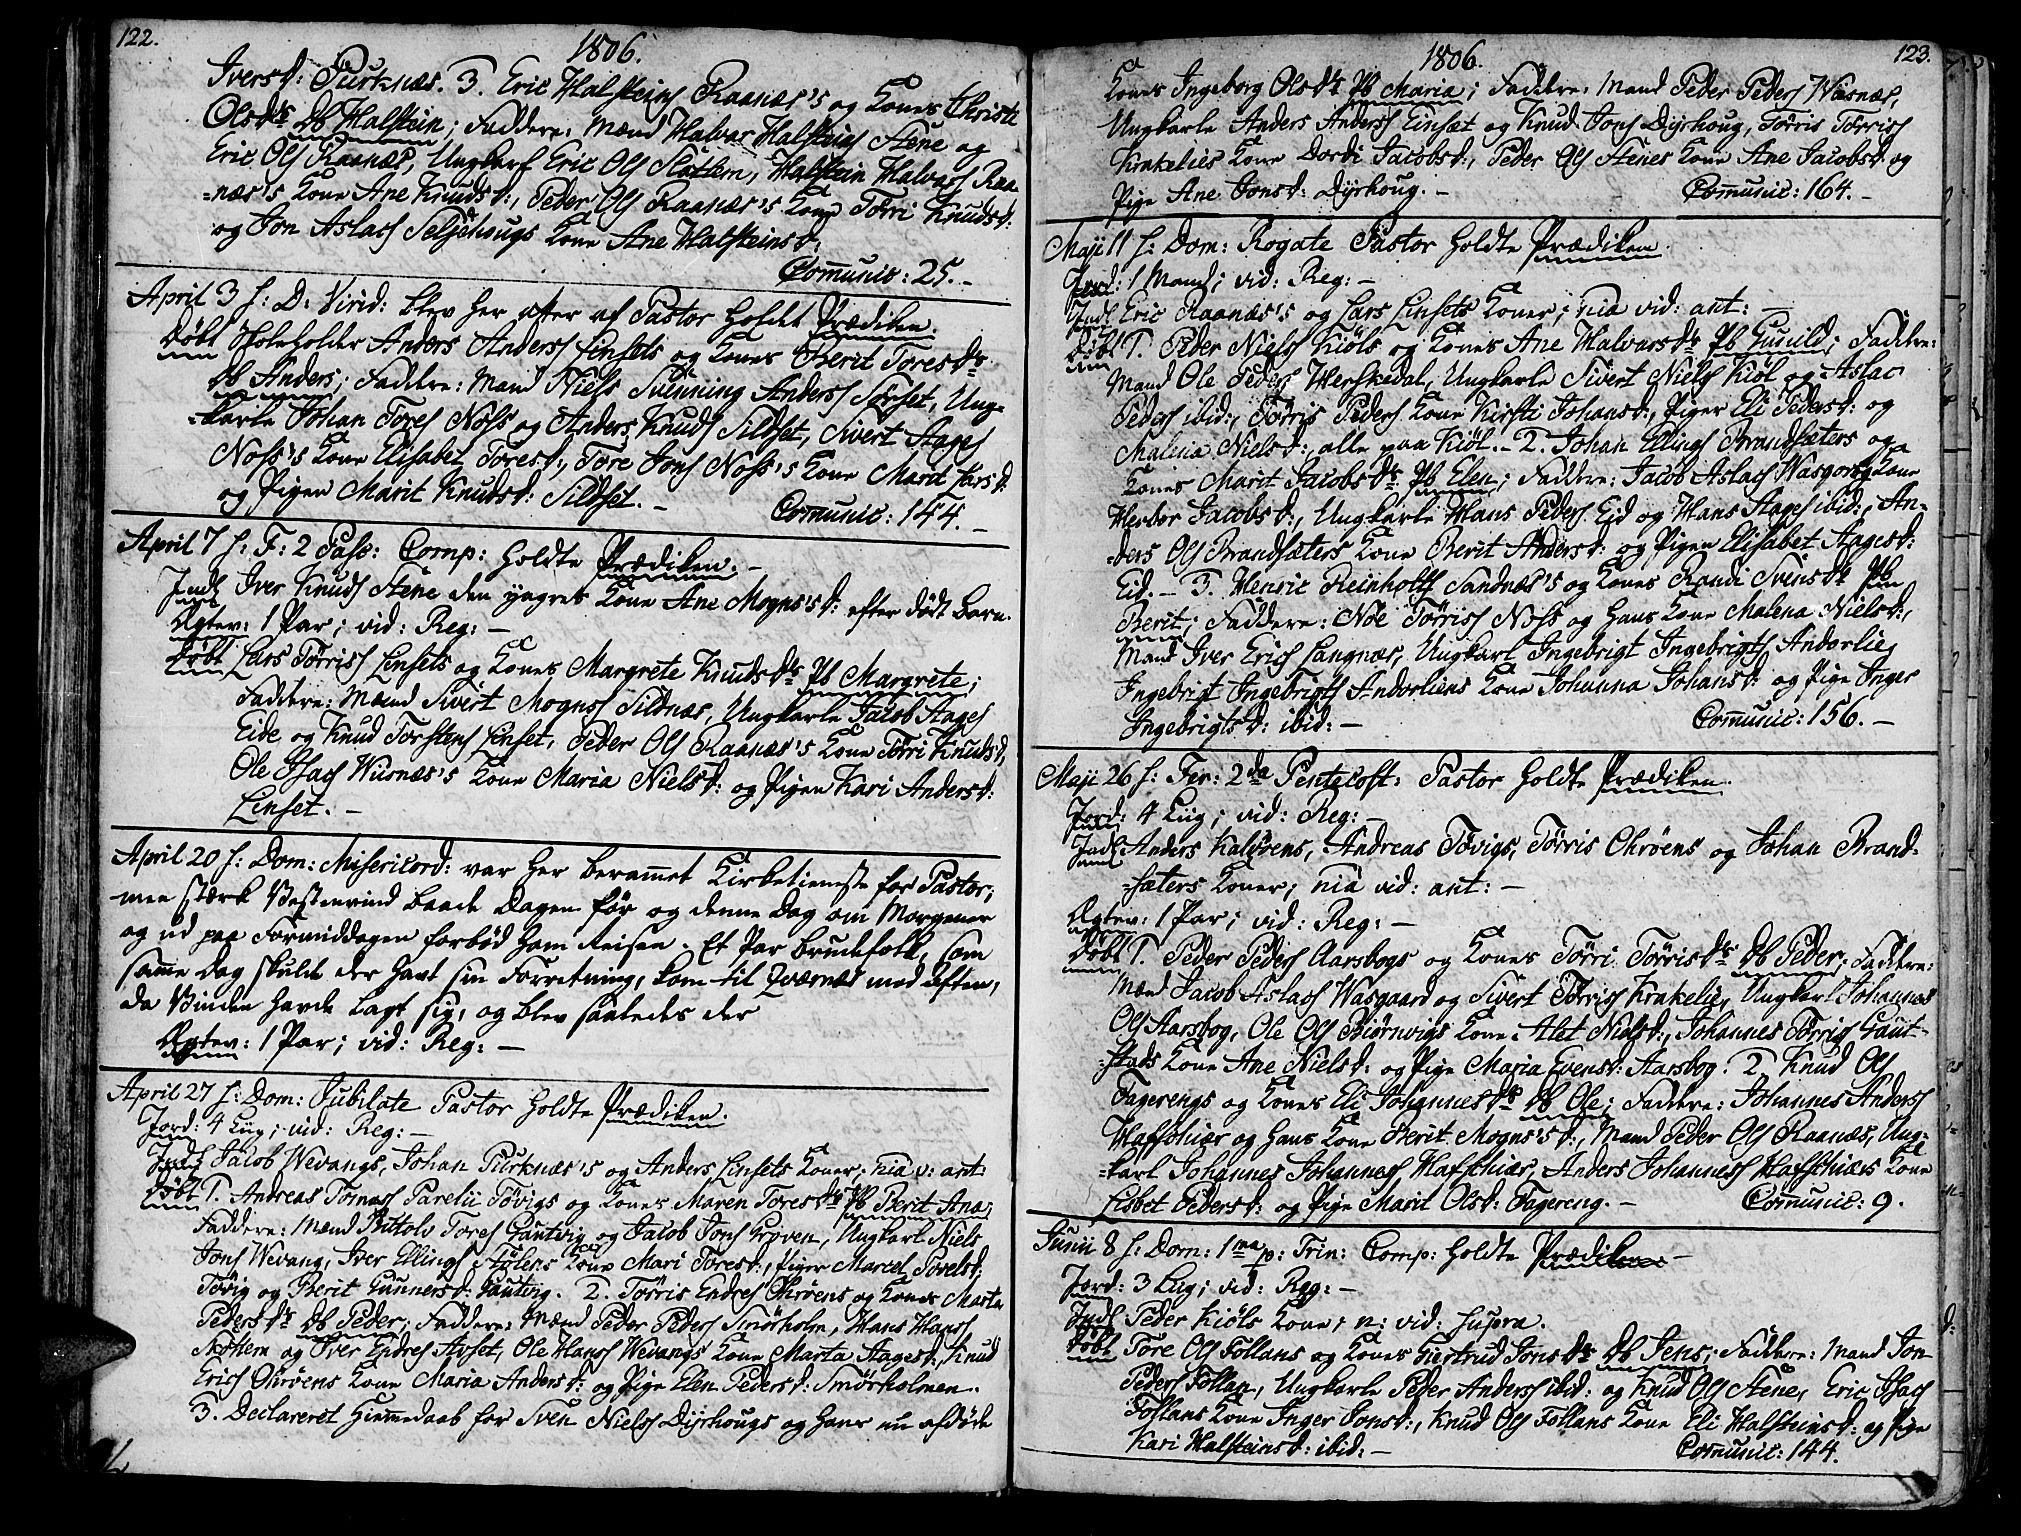 122.
1806.
Iversd: Purknæs. 3. Eric Halsteins Raanæs's og Kones Christi
Olsdtr db Halstein; Faddere: Mænd Halvar Halsteins Stene og
Eric Ols Raanæs, Ungkarl Eric Ols Slatlem, Halstein Halvars Raa-
-næs's Kone Ane Knudsd:, Peder Ols Raanæs's Kone Törri Knudsd:
og Jon Aslacs Seljehougs Kone Ane Halsteinsd:
Comunic: 25. -
April 3 h: D: Virid: blev her atter af Pastor holdet Prædiken.
Döbt Skoleholder Anders Anders Linsets og Kones Berit Toresdtr
db Anders; Faddere: Mand Niels Svenning Anders Sörset, Ung-
-karle Johan Tores Noss og Anders Knuds Sildset, Sivert Aages
Noss's Kone Elisabet Toresd:, Tore Jons Noss's Kone Marit Larsd:
og Pigen Marit Knudsd: Sildset. -
Comunic: 144. -
April 7 h: F: 2 Pasc: Comp: holdte Prædiken. -
Indl Iver Knuds Stene den yngres Kone Ane Mogns'sd: efter dödt barn.
Ægtev: 1 Par; vid: Reg: -
Döbt Lars Törris Linsets og Kones Margrete Knudsdtr Pb Margrete;
Faddere: Mænd Sivert Mognss Sildnæs, Ungkarle Jacob Aages
Eide og Knud Torstens Linset, Peder Ols Raanæs's Kone Törri Knudsd,
Ole Isacs Wiisnæs's Kone Maria Nielsd: og Pigen Kari Andersd:
Linset. -
April 20 h: Dom: Misericord: var her berammet Kirketieneste for Pastor;
men stærk Vestenvind baade Dagen för og denne Dag om Morgenen
og ud paa Formiddagen forböd ham Reisen. Et Par Brudefolk, som
samme Dag skulde der havt sin Forretning, kom til Qværnæs mod Aften,
da Vinden havde lagt sig, og blev saaledes der
Ægtev: 1 Par; vid: Reg: -
April 27 h: Dom: Jubilate Pastor holdte Prædiken.
Jord: 4 Liig; vid: Reg: -
Indl Jacob Wevangs, Johan Purknæs's og Anders Linsets Koner; nia v: ant:
Döbt 1. Andreas Tomas Parelii Tövigs og Kones Maren Toresdtr Pb Berit Ana;
Faddere: Mænd Bottolv Tores Gautvig og Jacob Jons Gröven, Ungkarl Niels
Jons Wevang, Iver Ellings Stölens Kone Mari Toresd:, Piger Marcel Povelsd:
Tövig og Berit Gunnersd: Gautvig. 2. Törris Endres Ohröens og Kones Marta
Pedersdtr db Peder; Faddere: Mænd Peder Peders Smörholm, Hans Hans
Skotlem og Iver Endres Avset, Ole Hans Wevangs Kone Marta Aagesd:, Knud
Erics Ohröens Kone Maria Andersd: og Pige Elen Pedersd: Smörholmen.
3. Declareret Hiemmedaab for Sven Niels Dyrhougs og hans nu afdöde
123.
1806.
Kones Ingeborg Olsdtr Pb Maria; Faddere: Mand Peder Peders Wiisnæs,
Ungkarle Anders Anders Einsæt og Knud Jons Dyrhoug, Törris Törris
Krakeliens Kone Dordi Jacobsd:, Peder Ols Stenes Kone Ane Jacobsd: og
Pige Ane Jonsd: Dyrhoug. -
Comunic: 164. -
Maji 11 h: Dom: Rogate Pastor holdte Prædiken.
Jord: 1 Mand; vid: Reg: -
Indl Eric Raanæs's og Lars Linsets Koner; nia vid: ant: -
Döbt 1. Peder Niels Kiöls og Kones Ane Halvarsdtr Pb Gunild; Faddere:
Mand Ole Peders Herskedal, Ungkarle Sivert Niels Kiöl og Aslac
Peders ibid:, Törris Peders Kone Kirsti Johansd:, Piger Eli Pedersd: og
Malena Nielsd:, alle paa Kiöl. - 2. Johan Ellings Brandsæters og
Kones Marit Jacobsdtr Pb Elen; Faddere: Jacob Aslacs Wasgord og Kone
Herbor Jacobsd:, Ungkarle Hans Peders Eid og Hans Aages ibid:, An-
-ders Ols Brandsæters Kone Berit Andersd: og Pigen Elisabet Aagesd:
Eid. - 3. Henric Reinholts Sandnæs's og Kones Randi Svensdtr Pb
Berit; Faddere: Noe Törris Noss og hans Kone Malena Nielsd:,
Mand Iver Erics Langnæs, Ungkarl Ingebrigt Ingebrigts Andorlie,
Ingebrigt Ingebrigts Andorliens Kone Johanna Johansd: og Pige Inger
Ingebrigtsd: ibid: -
Comunic: 156. -
Maji 26 h: Fer: 2da Pentecost: Pastor holdte Prædiken.
Jord: 4 Liig; vid: Reg: -
Indl: Anders Kalvöens, Andreas Tövigs, Törris Ohröens og Johan Brand-
-sæters Koner; nia vid: ant: -
Ægtev: 1 Par; vid: Reg: -
Döbt 1. Peder Peders Aarsbogs og Kones Törri Törrisdtr db Peder; Faddere:
Mænd Jacob Aslacs Wasgaard og Sivert Törris Krakelie, Ungkarl Johannes
Ols Aarsbog, Ole Ols Biörnvigs Kone Alet Nielsd:, Johannes Törris Gaut-
-stads Kone Ane Nielsd: og Pige Maria Evensd: Aarsbog. 2. Knud Ols
Fagerengs og Kones Eli Johannesdtr db Ole; Faddere: Johannes Anders
Hafsthiær og hans Kone Berit Mogns'sd:, Mand Peder Ols Raanæs, Ung-
-karl Johannes Johannes Hafsthiær, Anders Johannes Hafsthiærs Kone
Lisbet Pedersd: og Pige Marit Olsd: Fagereng. -
Comunic: 9.
Junii 8 h: Dom: 1ma p: Trin: Comp: holdte Prædiken -
Jord: 3 Liig; vid: Reg: -
Indl Peder Kiöls Kone; n: vid: supra.
Döbt Tore Ols Follans og Kones Giertrud Jonsdtr db Jens; Faddere: Mand Jon
Peders Follan, Ungkarle Peder Anders ibid: og Knud Ols Stene, Eric Isacs
Follans Kone Inger Jonsd:, Knud Ols Follans Kone Eli Halsteinsd: og Pige
Kari Halsteinsd: ibid: -
Comunic: 144.